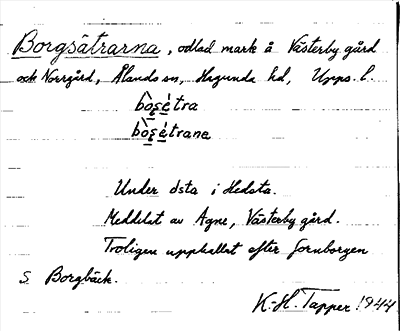 Borgsätrarna, odlad mark å Västerby gård
och Norrgård, Ålands sn, Hagunda hd, Upps. l.
bo̠sé̠tra
bo̠sé̠trana
Under dsta i Hedsta.
Meddelat av Agne, Västerby gård.
Troligen uppkallat efter fornborgen
S. Borgbäck.
K-H. Tapper 1944